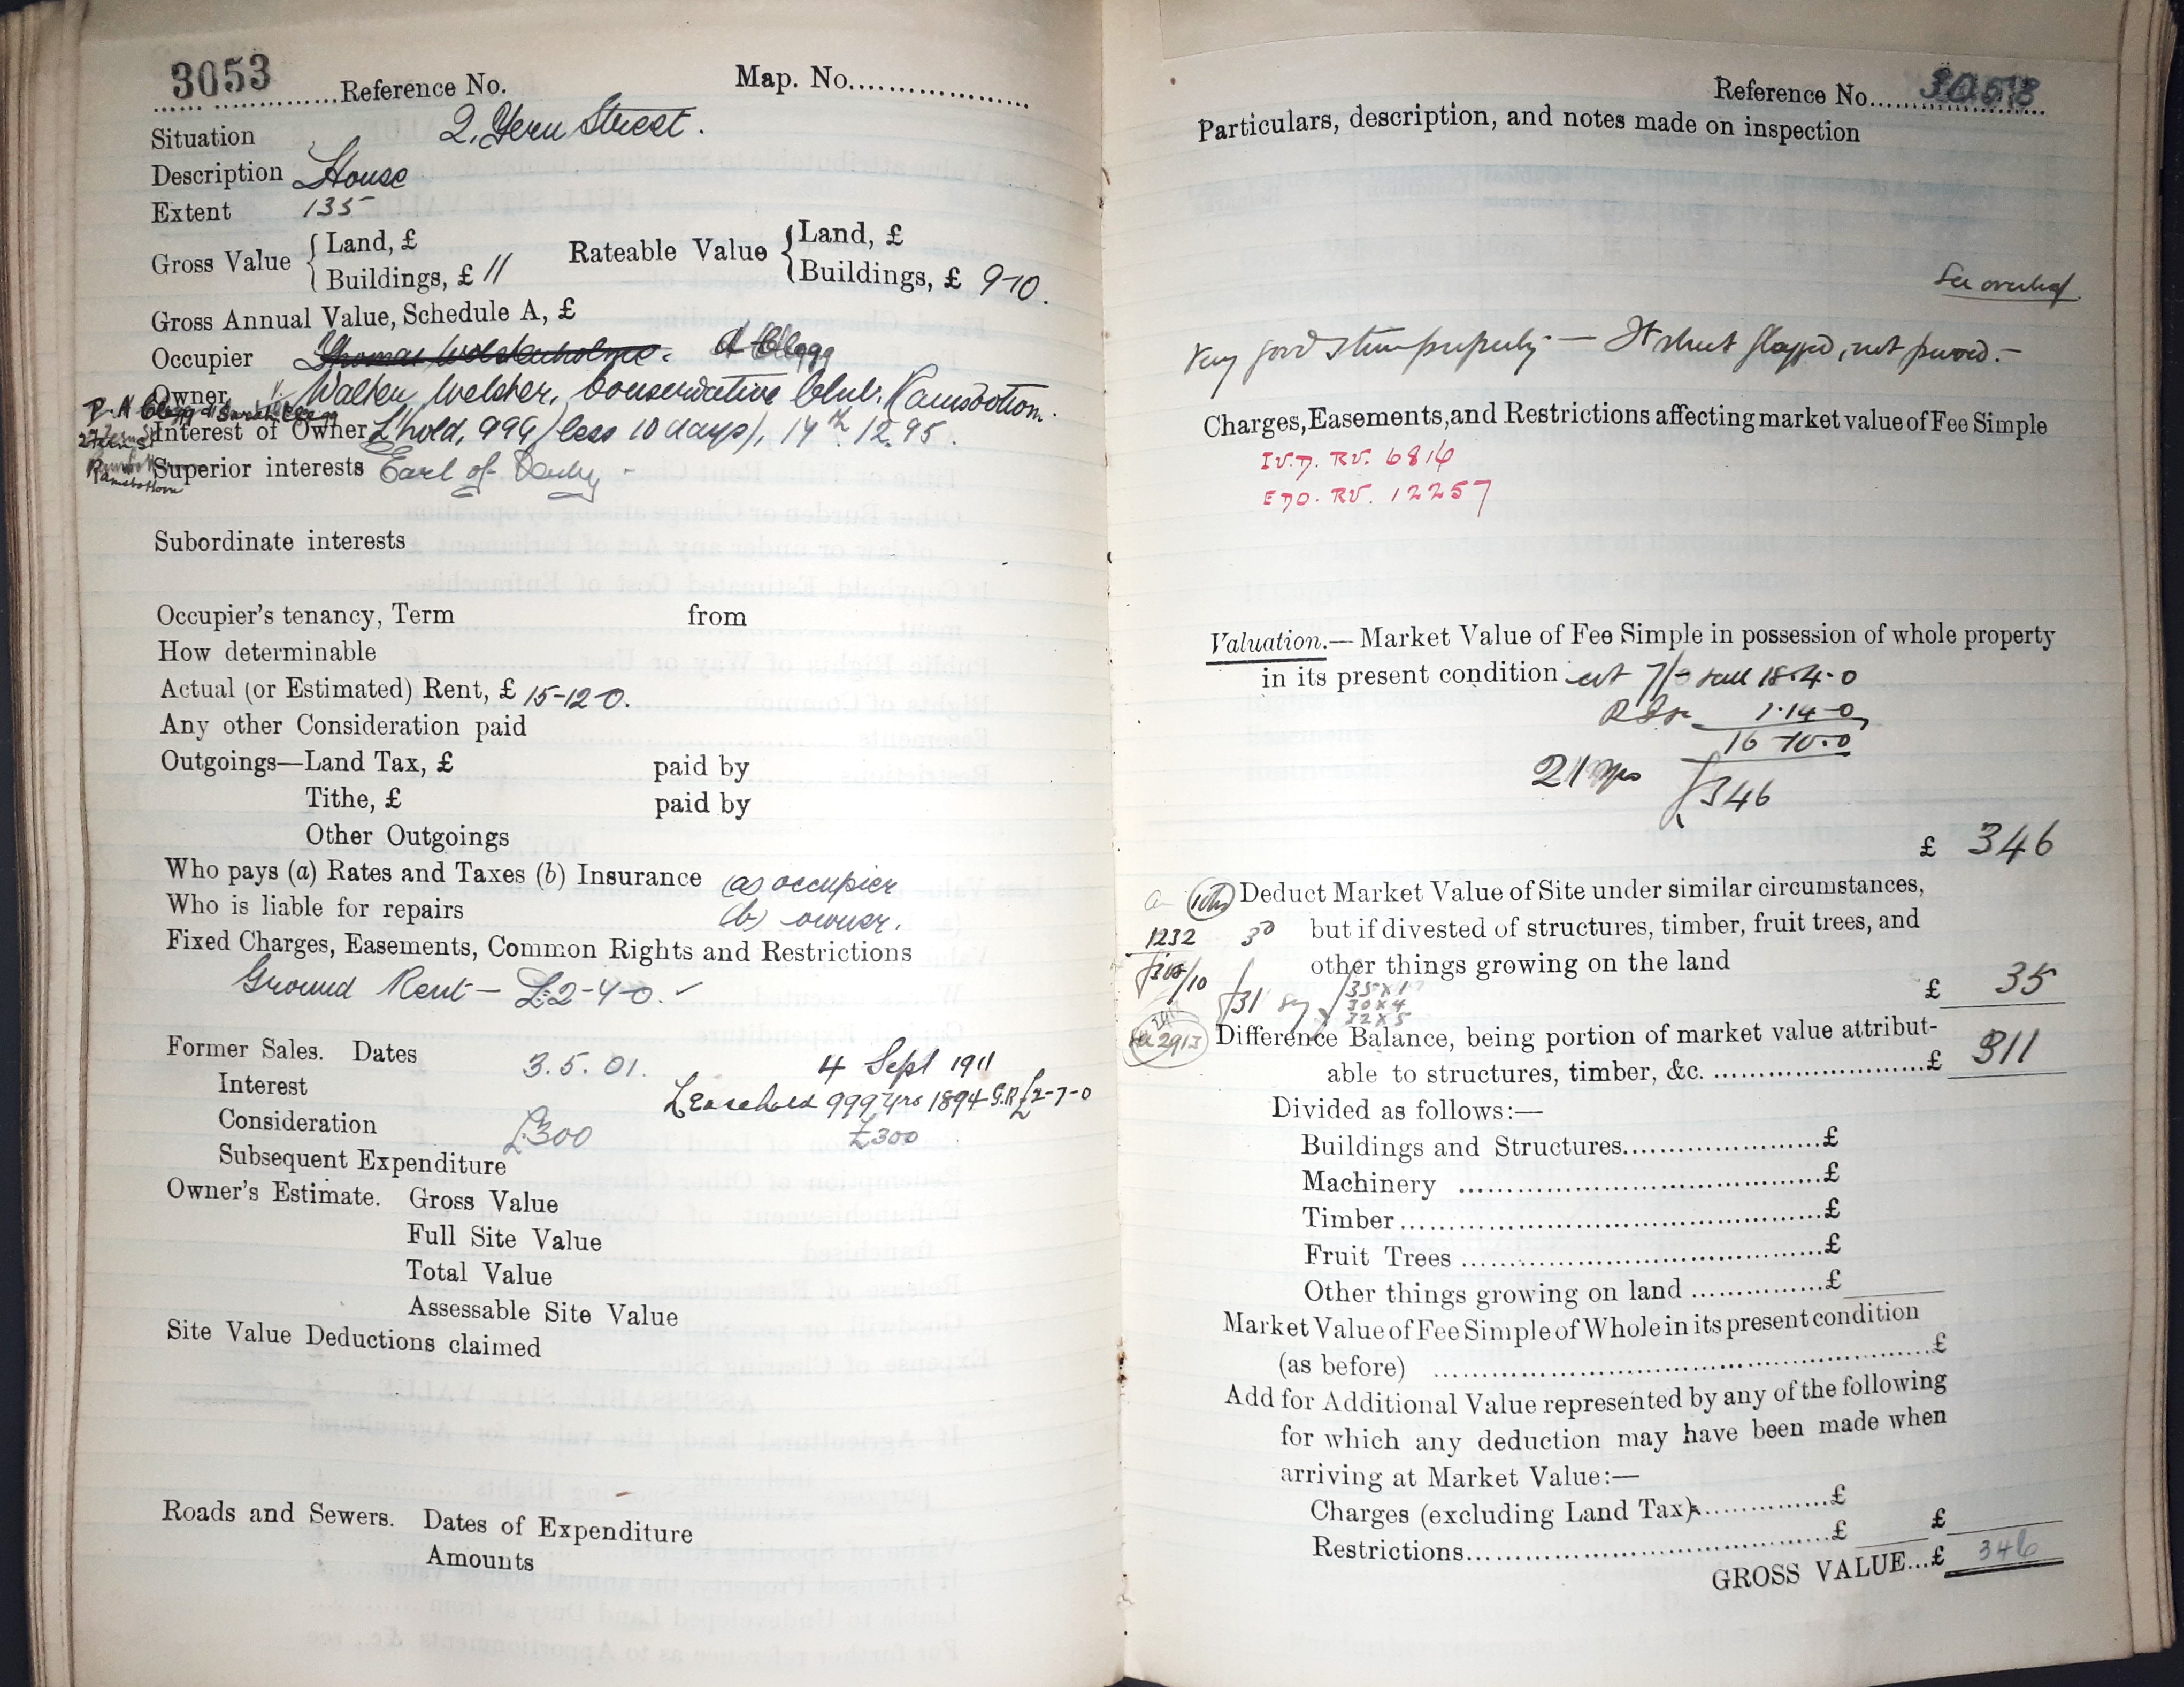 3053 Reference No. Map. No.
Situation 2, Fern Street.
Description House
Extent 135
Gross Value { Land, £
Buildings, £ 11
Rateable Value { Land, £
Buildings, £ 9-10.
Gross Annual Value, Schedule A, £
Occupier Thomas Wolstenholme. A Clegg
Owner Walter Welcher, Conservative Club, Ramsbottom.
Clegg & Sarah Clegg
Interest of Owner L'hold, 999 (less 10 days), 14th 12. 95.
Ramsbottom
Superior interests Earl of Derby
Subordinate interests
Occupier's tenancy, Term from
How determinable
Actual (or Estimated) Rent, £ 15-12-0.
Any other Consideration paid
Outgoings—Land Tax, £ paid by
Tithe, £ paid by
Other Outgoings
Who pays (a) Rates and Taxes (b) Insurance (a) occupier
Who is liable for repairs (b) owner.
Fixed Charges, Easements, Common Rights and Restrictions
Ground Rent — £2-4-0. ✓
Former Sales. Dates 3. 5. 01. 4 Sept 1911
Interest Leasehold 999 yrs 1894 G.R £2-7-0
Consideration £300 £300
Subsequent Expenditure
Owner's Estimate. Gross Value
Full Site Value
Total Value
Assessable Site Value
Site Value Deductions claimed
Roads and Sewers. Dates of Expenditure
Amounts
Reference No. 3053
Particulars, description, and notes made on inspection
See overleaf
Very good stone property — St sheet flagged, not paved.—
Charges, Easements, and Restrictions affecting market value of Fee Simple
I.V.D. RV. 6816
EDO. RV. 12257
Valuation.— Market Value of Fee Simple in possession of whole property
in its present condition at 7/- 18.4.0
1.14-0
16-10.0
21 yrs £346
£ 346
Deduct Market Value of Site under similar circumstances,
but if divested of structures, timber, fruit trees, and
other things growing on the land
£ 35
1232 3d
£308/10
£31 say
35 x 1
30 x 4
32 x 5
2913
Difference Balance, being portion of market value attribut-
able to structures, timber, &c. £ 311
Divided as follows:—
Buildings and Structures £
Machinery £
Timber £
Fruit Trees £
Other things growing on land £
Market Value of Fee Simple of Whole in its present condition
(as before) £
Add for Additional Value represented by any of the following
for which any deduction may have been made when
arriving at Market Value:—
Charges (excluding Land Tax) £
Restrictions £ £
GROSS VALUE...£ 346